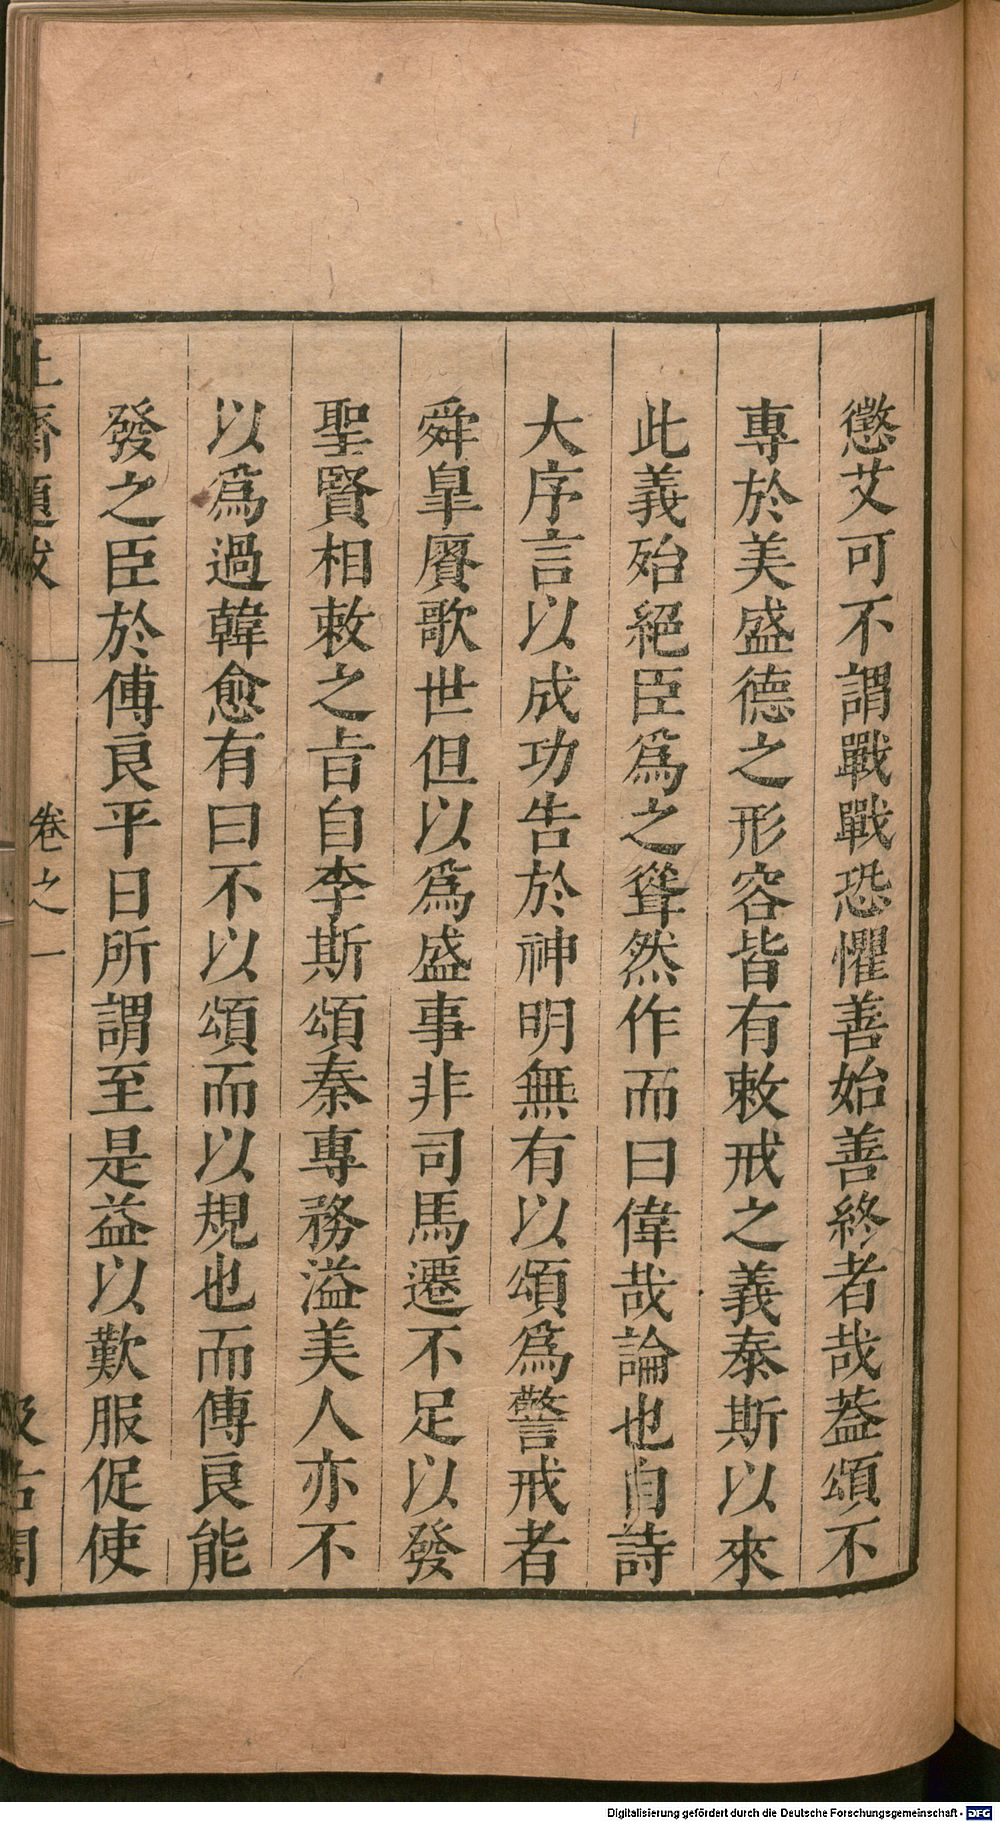 懲艾可不謂戰戰恐懼善始善終者哉葢頌不
專於美盛德之形容皆有敕戒之義泰斯以來
此義殆絕臣爲之聳然作而曰偉哉論也自詩
大序言以成功告於神明無有以頌爲警戒者
舜臯賡歌世但以爲盛事非司馬遷不足以發
聖賢相敕之㫖自李斯頌秦專務溢美人亦不
以爲過韓愈有曰不以頌而以規也而傅良能
發之臣於傅良平日所謂至是益以歎服促使
止齋題跋
卷之一
汲古閣
Digitalisierung gefördert durch die Deutsche Forschungsgemeinschaft - DFG